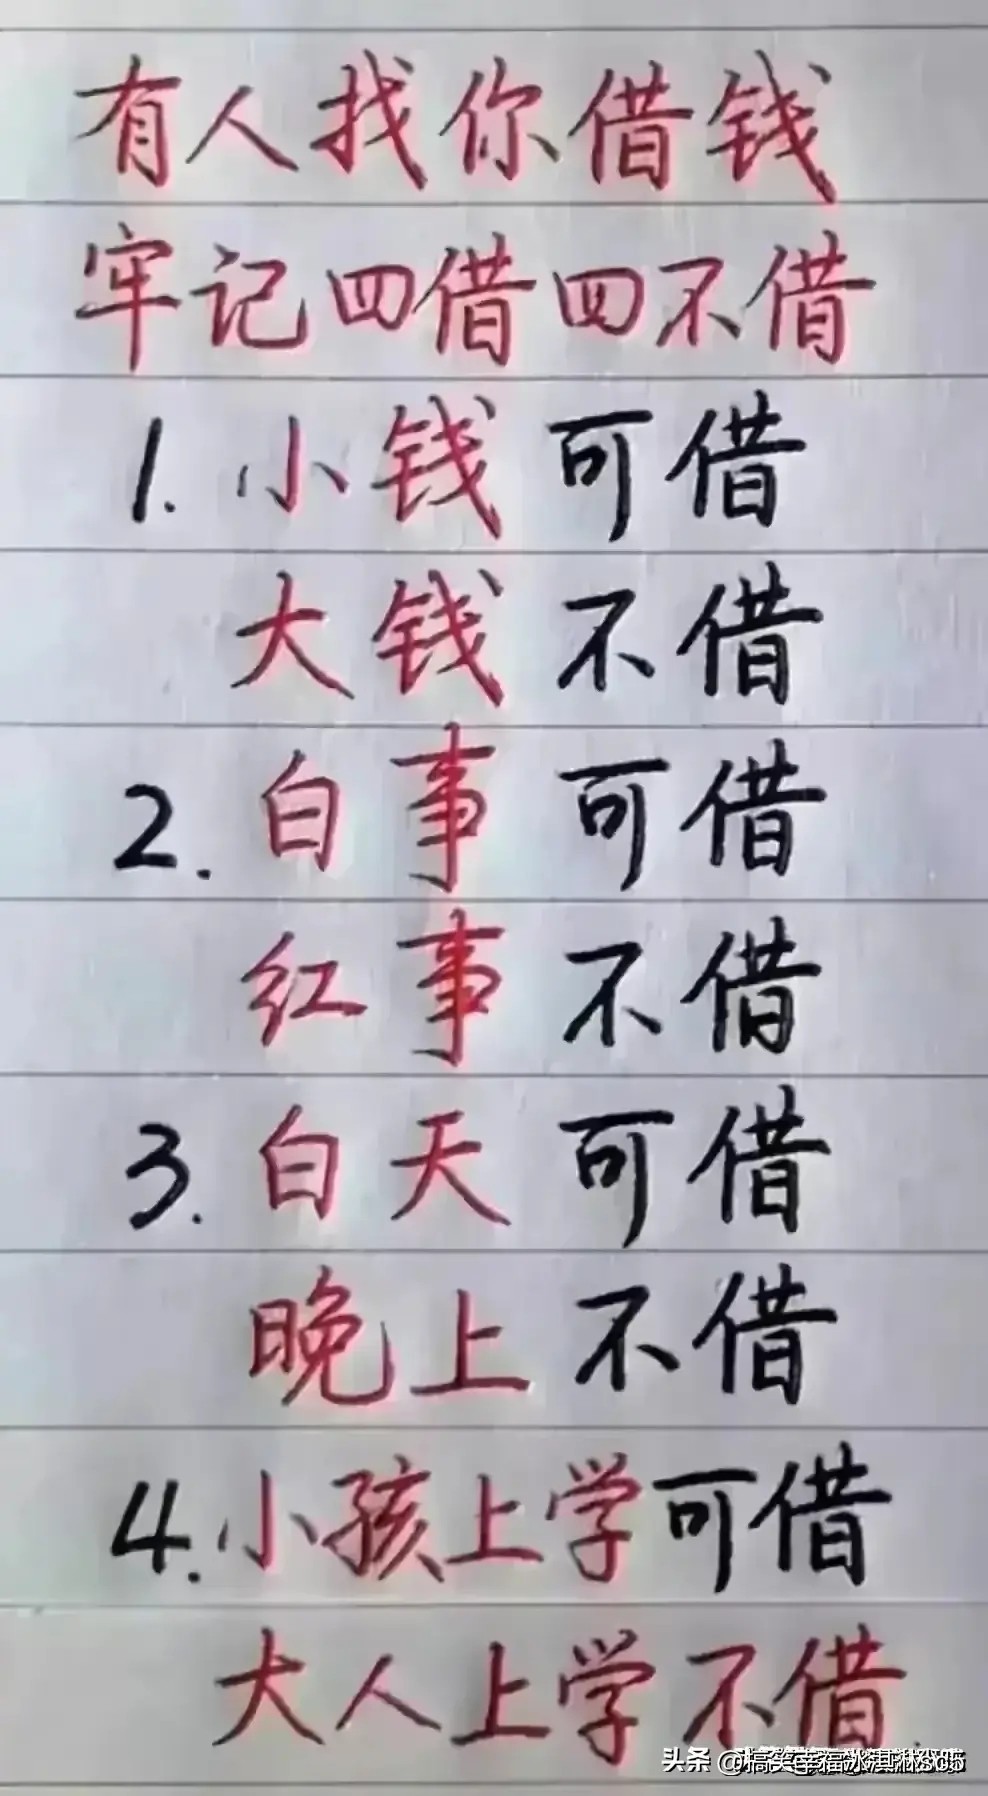 有人找你借钱
牢记四借四不借
1. 小钱可借
大钱不借
2. 白事可借
红事不借
3. 白天可借
晚上不借
4. 小孩上学可借
大人上学不借
头条 @搞笑幸福冰淇淋